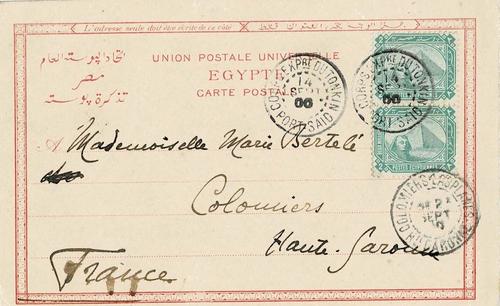 L'adresse seule doit être écrite de ce côté
اتحاد البوستة العام
UNION POSTALE UNIVERSELLE
مصر
EGYPTE
تذكرة بوستة
CARTE POSTALE
CORPS EXPRE DU TONKIN
14
SEPT
00
PORT-SAID
CORPS EXPRE DU TONKIN
14
00
PORT SAID
A
Mademoiselle Marie Bertelé
Colomiers
Haute-Garonne
France
COLOMIERS
SEPT
HTE GARONNE